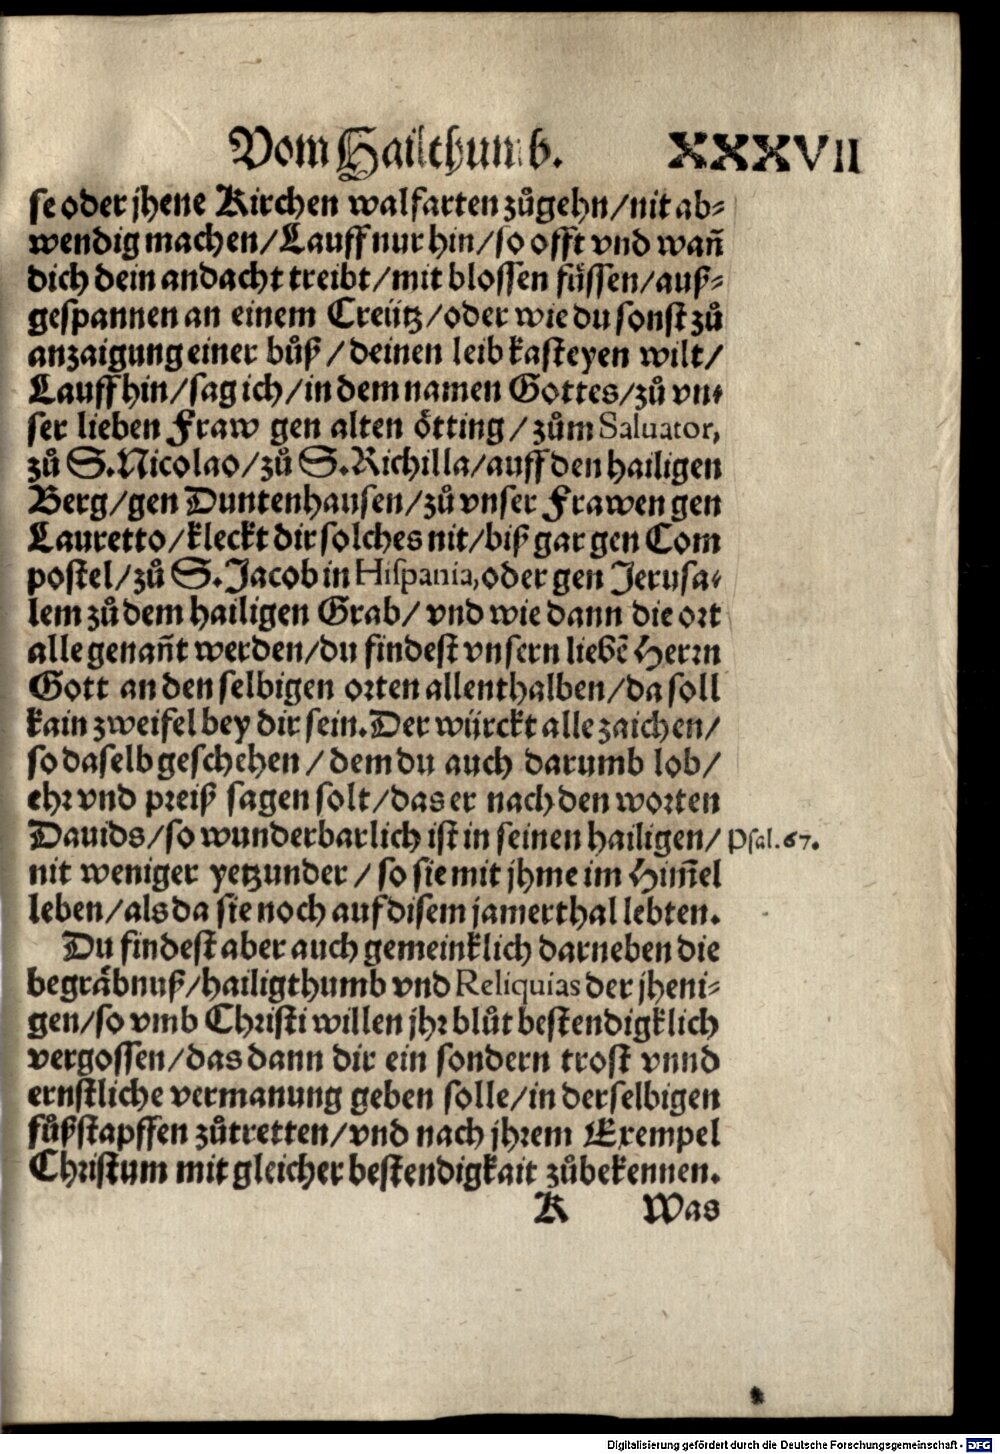 Vom Hailthumb. XXXVII
se oder jhene Kirchen walfarten zůgehn/nit ab-
wendig machen/Lauff nur hin/so offt vnd wañ
dich dein andacht treibt/mit blossen füssen/auß-
gespannen an einem Creütz/oder wie du sonst zů
anzaigung einer bůß/deinen leib kasteyen wilt/
Lauff hin/sag ich/in dem namen Gottes/zů vn-
ser lieben Fraw gen alten ötting/zům Saluator,
zů S.Nicolao/zů S.Richilla/auff den hailigen
Berg/gen Duntenhausen/zů vnser Frawen gen
Lauretto/kleckt dir solches nit/biß gar gen Com
postel/zů S.Jacob in Hispania,oder gen Jerusa-
lem zů dem hailigen Grab/vnd wie dann die ort
alle genañt werden/du findest vnsern liebẽ Herrn
Gott an den selbigen orten allenthalben/da soll
kain zweifel bey dir sein.Der würckt alle zaichen/
so daselb geschehen/dem du auch darumb lob/
ehr vnd preiß sagen solt/das er nach den worten
Dauids/so wunderbarlich ist in seinen hailigen/ Psal.67.
nit weniger yetzunder/so sie mit jhme im Him̃el
leben/als da sie noch auf disem jamerthal lebten.
Du findest aber auch gemeinklich darneben die
begräbnuß/hailigthumb vnd Reliquias der jheni-
gen/so vmb Christi willen jhr blůt bestendigklich
vergossen/das dann dir ein sondern trost vnnd
ernstliche vermanung geben solle/in derselbigen
fůßstapffen zůtretten/vnd nach jhrem Exempel
Christum mit gleicher bestendigkait zůbekennen.
K Was
Digitalisierung gefördert durch die Deutsche Forschungsgemeinschaft - DFG